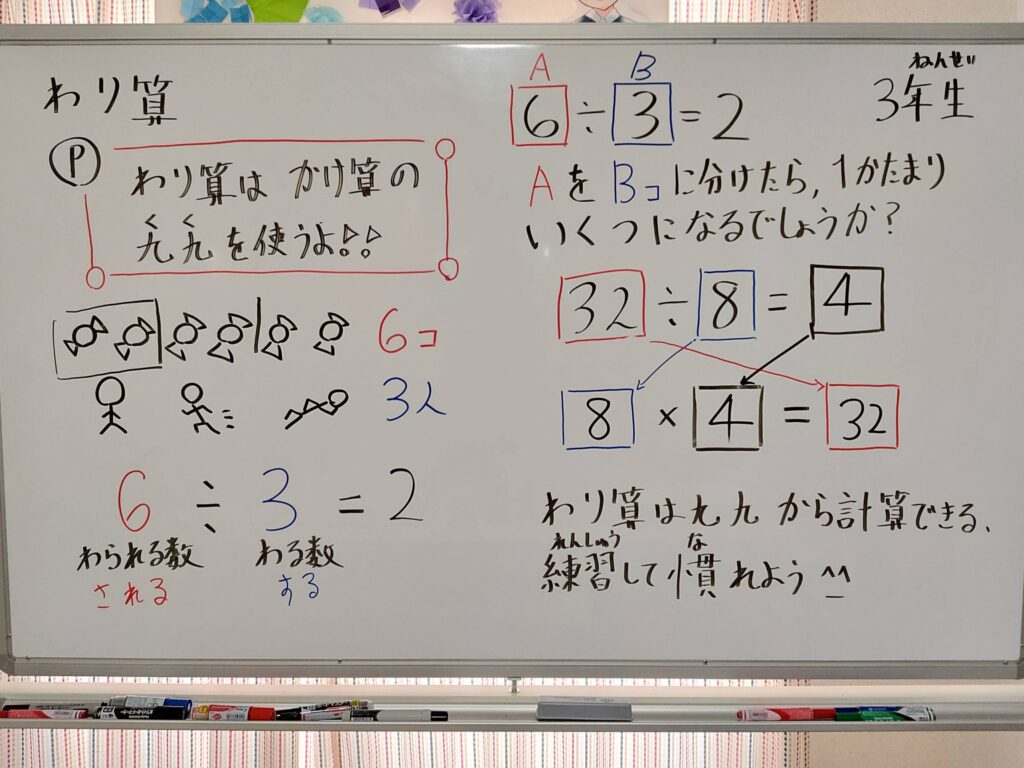 わり算
P
わり算は かけ算の
くく
九九を使うよ!!
6コ
3人
6 ÷ 3 = 2
わられる数 わる数
される する
ねんせい
3年生
A B
6 ÷ 3 = 2
AをBコに分けたら,1かたまり
いくつになるでしょうか?
32 ÷ 8 = 4
8 × 4 = 32
わり算は九九から計算できる、
れんしゅう な
練習して慣れよう ^^